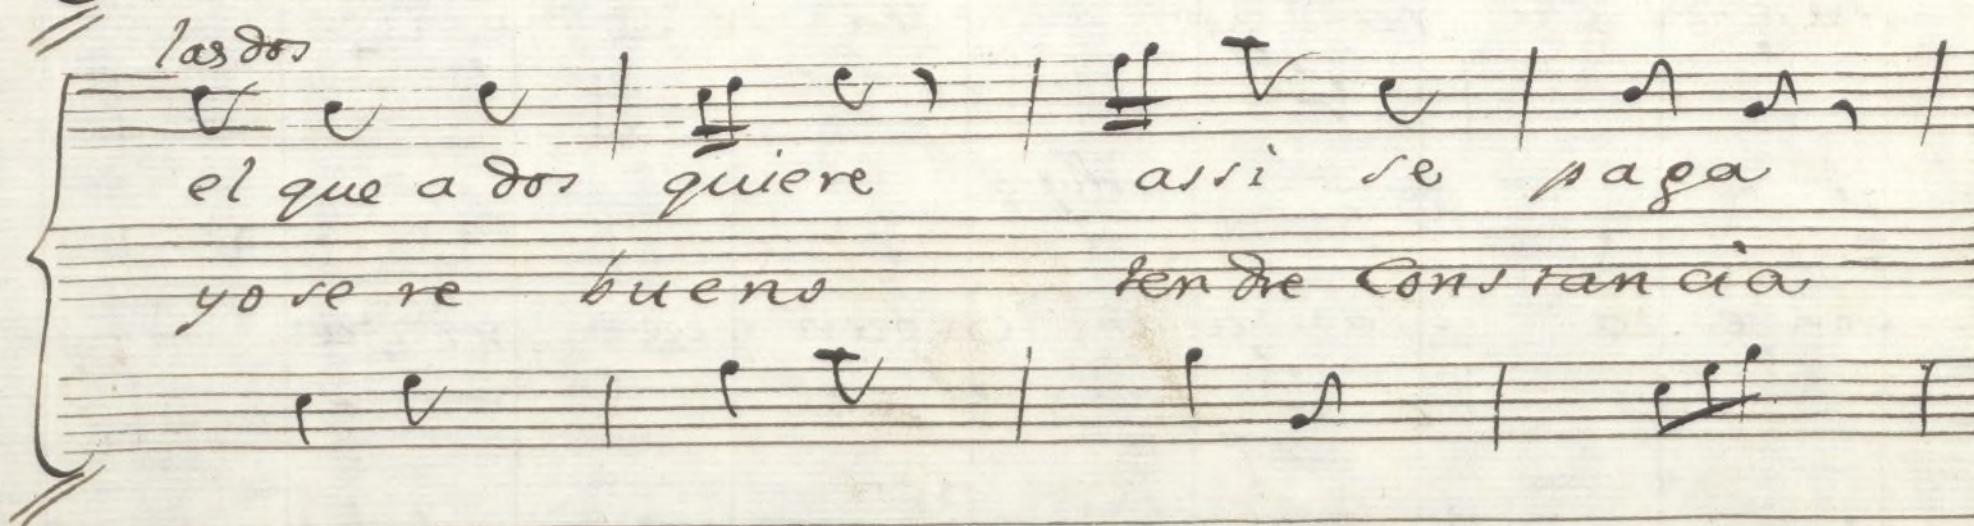 las dos
el que a dos quiere assi se paga
yo se re bueno ten dre Cons tan cia